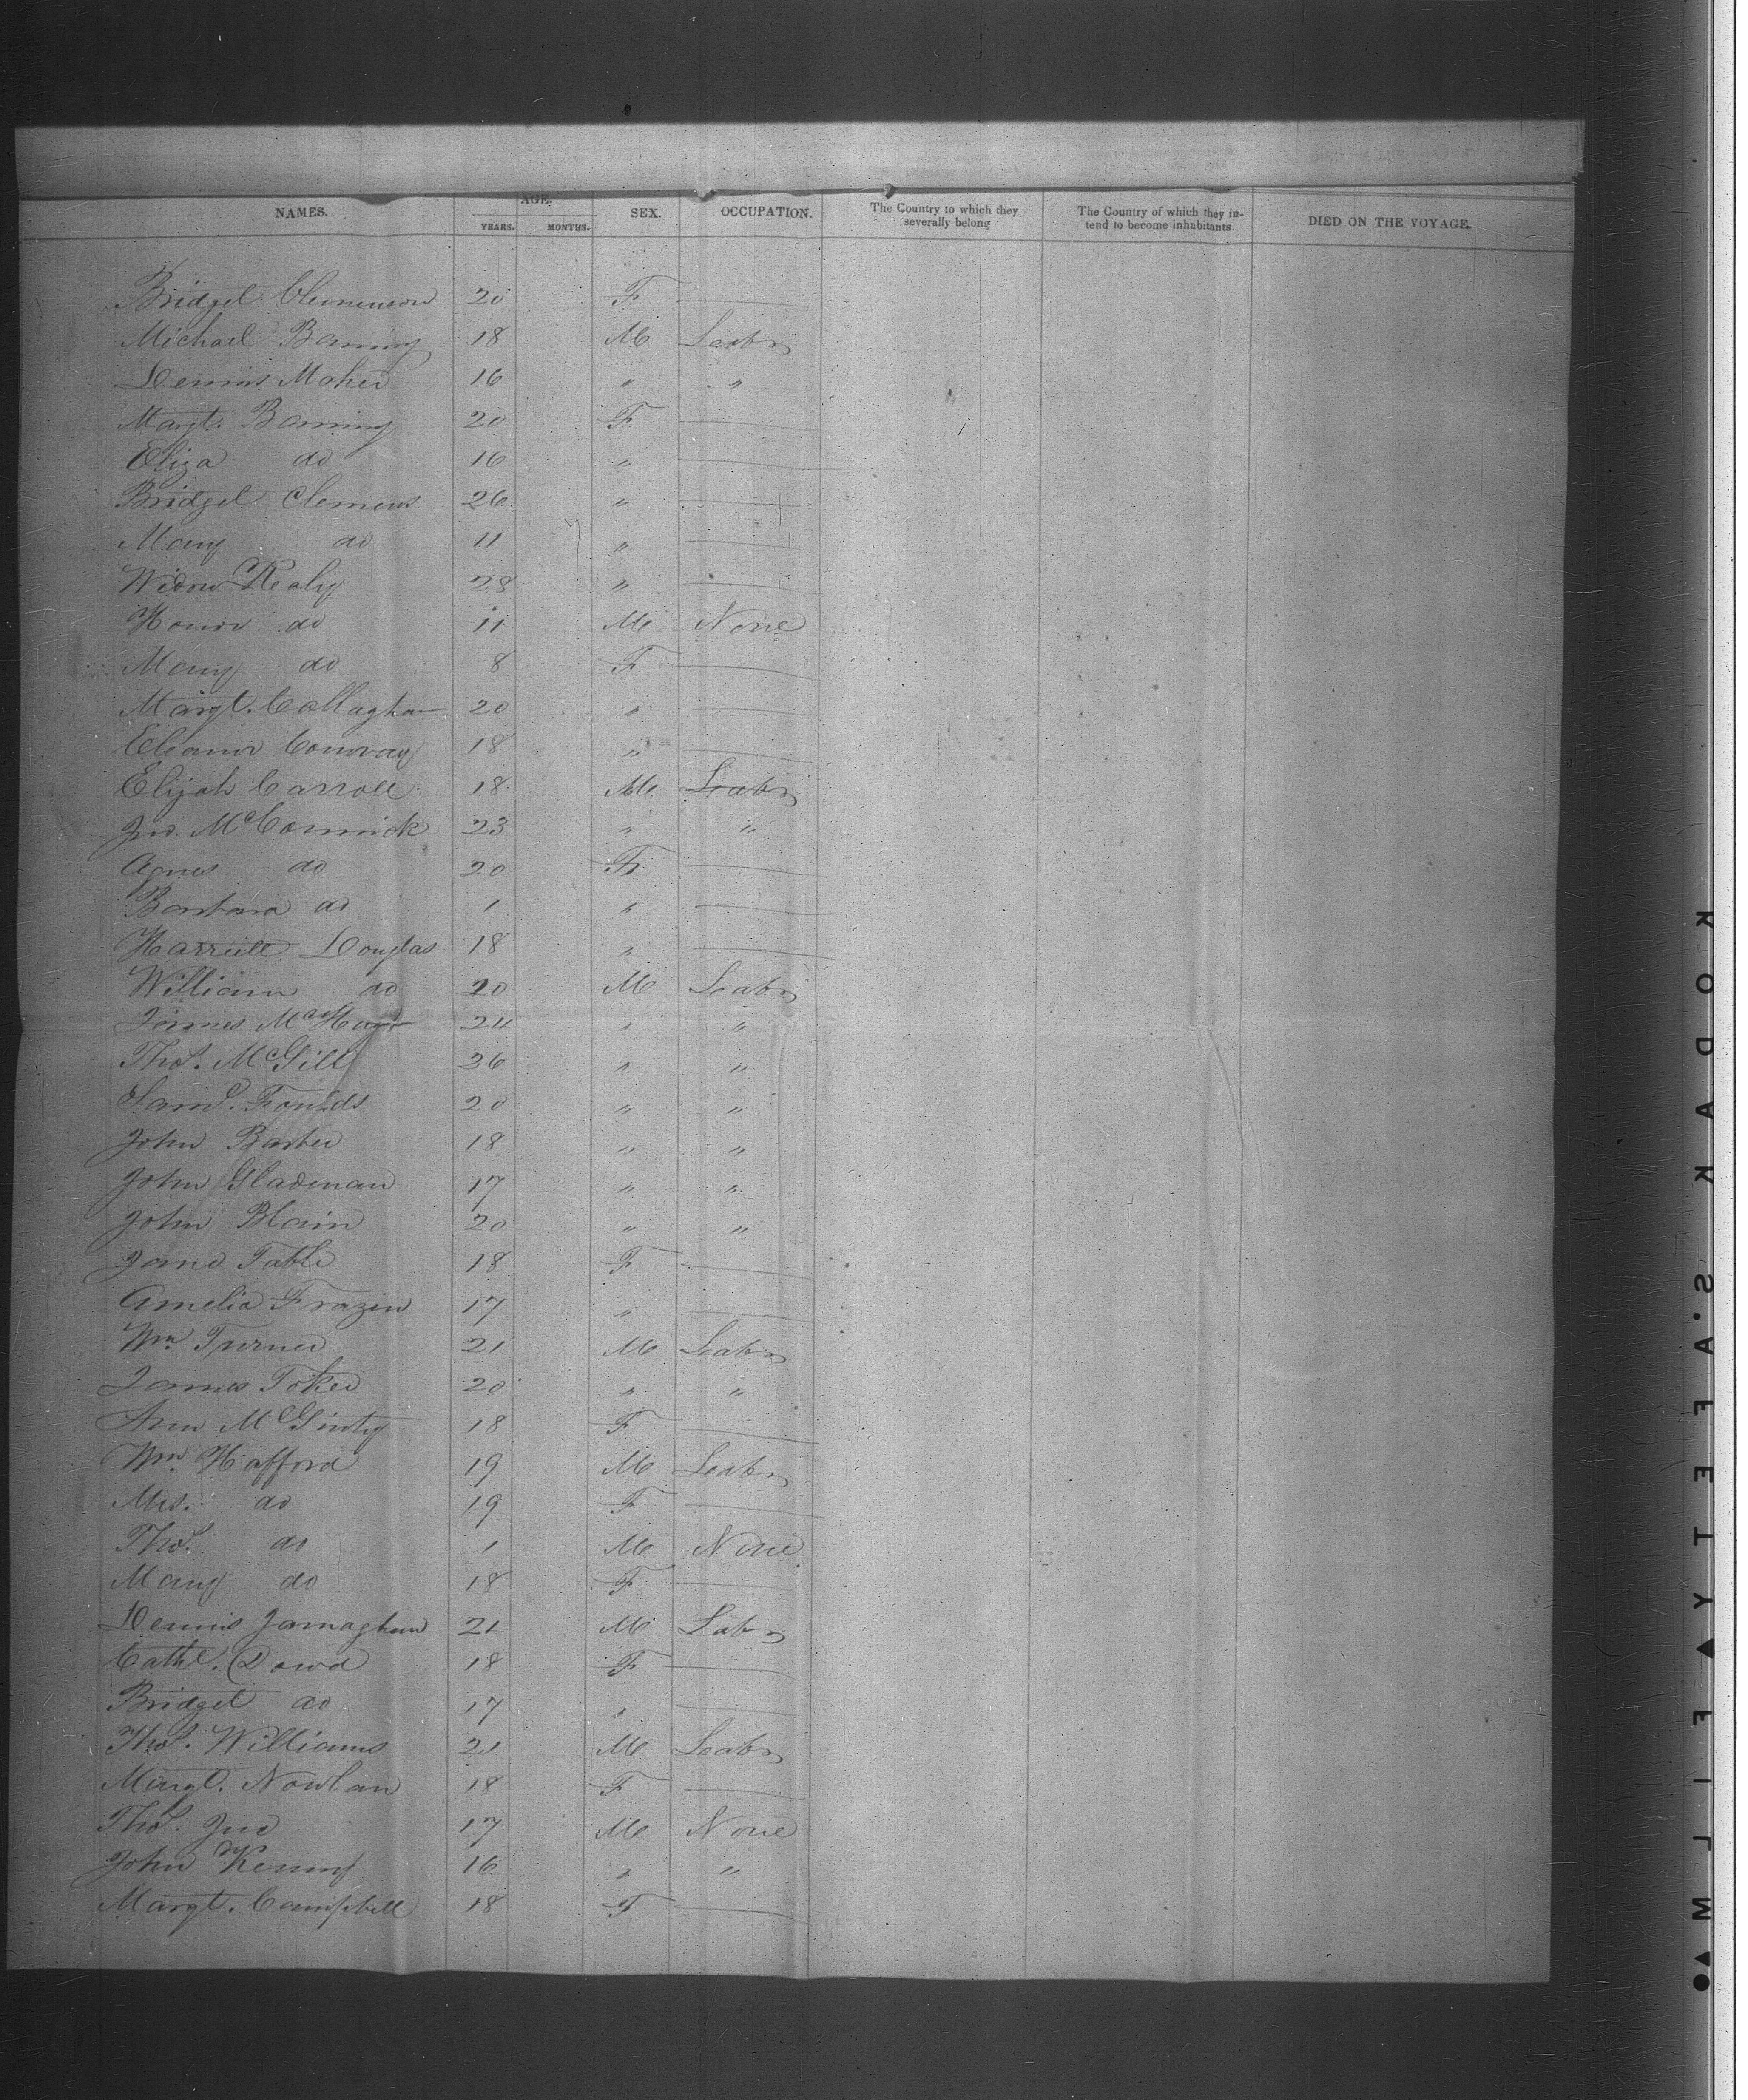 NAMES. AGE. SEX. OCCUPATION. The Country to which they severally belong The Country of which they in-tend to become inhabitants DIED ON THE VOYAGE.
YEARS. MONTHS.
Bridget Clemenson 20 F
Michael Banning 18 M Labr
Dennis Maher 16 " "
Margt. Banning 20 F
Eliza do 16 "
Bridget Clemens 26 "
Mary do 11 "
Widow Healy 28 "
Honor do 11 M None
Mary do 8 F
Margt. Callaghan 20 "
Eleanor Conway 18 "
Elijah Carroll 18 M Labr
Jno. McCormick 23 " "
Agnes do 20 F
Barbara do 1 "
Harriett Douglas 18 "
William do 20 M Labr
James 24 " "
Thos. McGill 26 " "
Saml. Foulds 20 " "
John Barber 18 " "
John Gladman 17 " "
John Blain 20 " "
Jane Table 18 F
Amelia Frazier 17 "
Wm. Turner 21 M Labr
James Toker 20 " "
Ann McGinty 18 F
Wm. Hafford 19 M Labr
Mrs. do 19 F
Thos. do 1 M None
Mary do 18 F
Dennis Jarnaghan 21 M Labr
Cathe. Dowd 18 F
Bridget do 17 "
Thos. Williams 21 M Labr
Margt. Nowlan 18 F
Thos. 17 M None
John Kenny 16 " "
Margt. Campbell 18 F
KODAK S.AFETY FILM